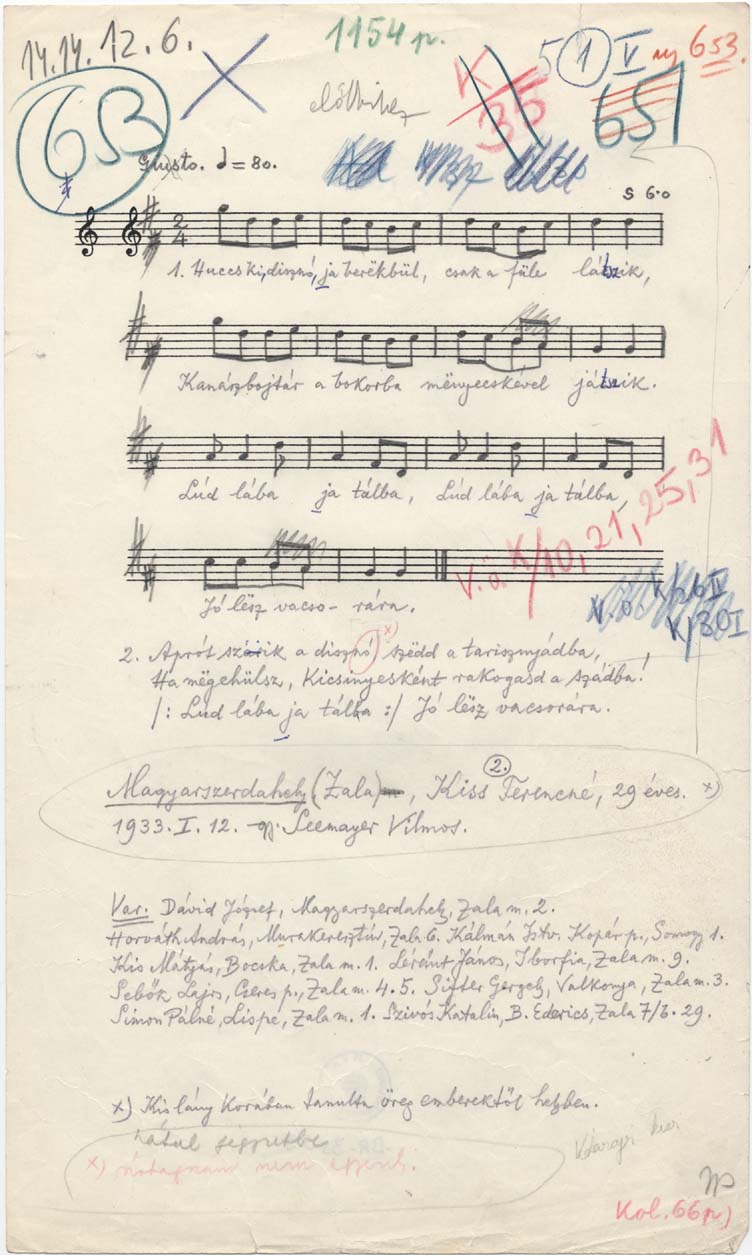 14.14.12.6.
1154 p.
5 ① V
653.
653
K
35
651
Giusto. = 80.
S 6.0
2
4
1. Huccs ki, disznó, ja berëkbül, csak a füle látszik,
Kanászbojtár a bokorba mënyecskével játszik.
Lúd lába ja tálba, Lúd lába ja tálba,
Jó lësz vacso- rára.
V.ö. K/10, 21, 25, 31
K/26 IV
K/30 I
2. Aprót a disznó x) szëdd a tarisznyádba,
Ha mëgehülsz, Kicsinyesként rakogasd a szádba!
/: Lúd lába ja tálba :/ Jó lësz vacsorára.
Magyarszerdahely (Zala), Kiss 2. Ferencné, 29 éves. x)
1933. I. 12. gy. Seemayer Vilmos.
Var. Dávid József, Magyarszerdahely, Zala m. 2.
Horváth András, Murakeresztúr, Zala 6. Kálmán Istv. Kopár p., Somogy 1.
Kis Mátyás, Bocska, Zala m. 1. Léránt János, Iborfia, Zala m. 9.
Sebők Lajos, Cseres p., Zala m. 4. 5. Sifter Gergely, Valkonya, Zala m. 3.
Simon Pálné, Lispe, Zala m. 1. Szivós Katalin, B. Ederics, Zala 7/b. 29.
x) Kis lány Korában tanulta öreg emberektől helyben.
hátul
x) nem
Kol. 66 p)